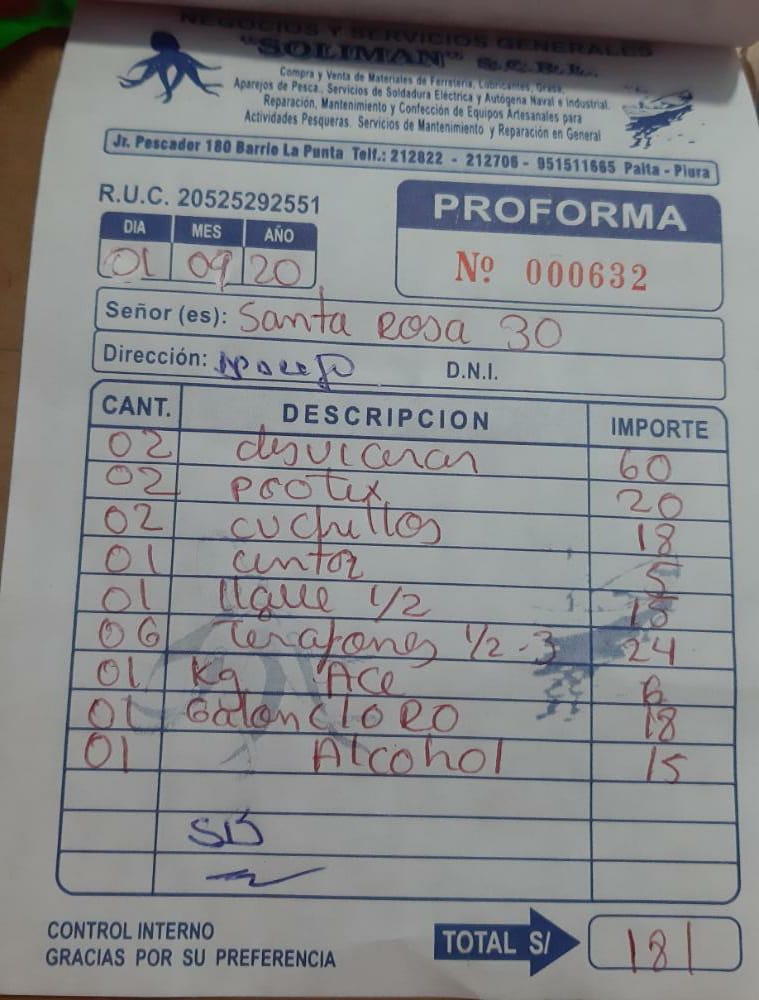 NEGOCIOS Y SERVICIOS GENERALES
"SOLIMAN" S.C.R.L.
Compra y Venta de Materiales de Ferretería, Lubricantes, Grasa,
Aparejos de Pesca., Servicios de Soldadura Eléctrica y Autógena Naval e Industrial.
Reparación, Mantenimiento y Confección de Equipos Artesanales para
Actividades Pesqueras. Servicios de Mantenimiento y Reparación en General
Jr. Pescador 180 Barrio La Punta Telf.: 212822 - 212706 - 951511665 Paita - Piura
R.U.C. 20525292551
PROFORMA
Nº 000632
DIA MES AÑO
01 09 20
Señor (es): Santa Rosa 30
Dirección: D.N.I.
CANT. DESCRIPCION IMPORTE
02 60
02 protex 20
02 cuchillos 18
01 5
01 llave 1/2 15
06 1/2-3 24
01 Kg ACE 6
01 Galon cloro 18
01 Alcohol 15
CONTROL INTERNO
GRACIAS POR SU PREFERENCIA
TOTAL S/ 181